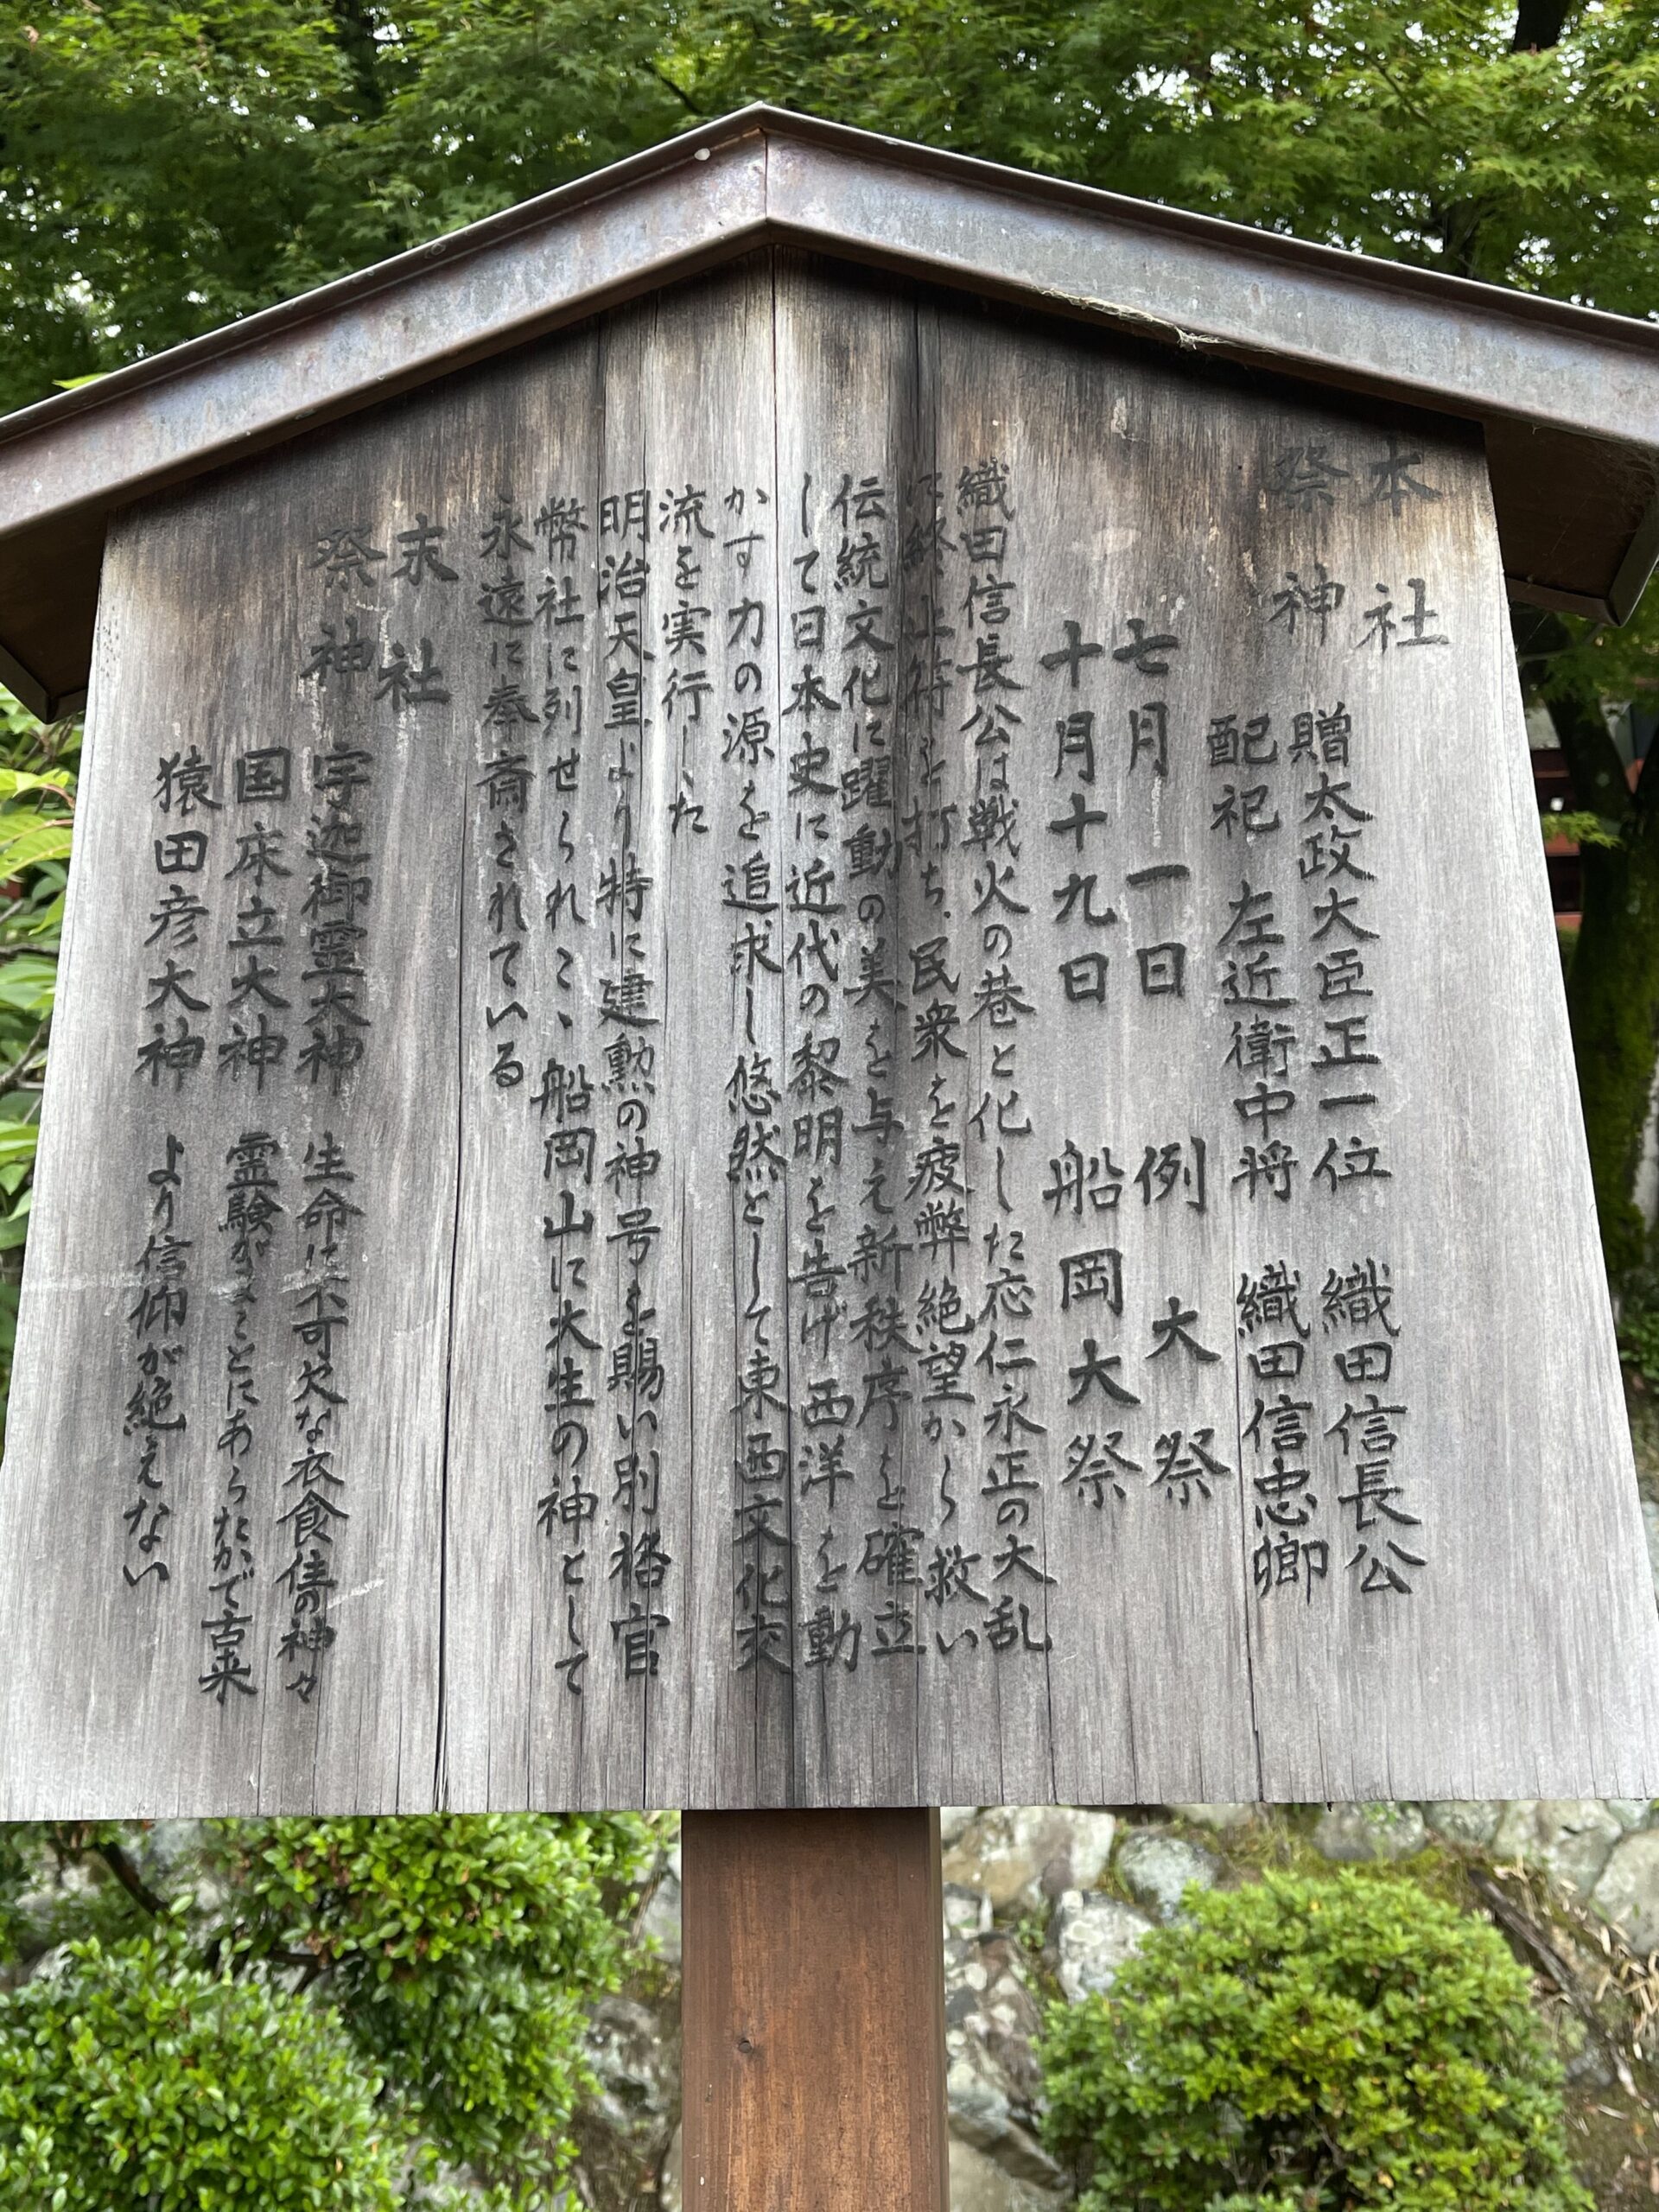 本社
祭神
贈太政大臣正一位 織田信長公
配祀 左近衛中将 織田信忠卿
七月 一日 例大祭
十月十九日 船岡大祭
織田信長公は戦火の巷と化した応仁永正の大乱
に終止符を打ち、民衆を疲弊絶望から救い
伝統文化に躍動の美を与え新秩序を確立
して日本史に近代の黎明を告げ 西洋を動
かす力の源を追求し悠然として東西文化交
流を実行した
明治天皇より特に建勲の神号を賜い別格官
幣社に列せられここ船岡山に大生の神として
永遠に奉斎されている
末社
祭神
宇迦御霊大神 生命に不可欠な衣食住の神々
国床立大神 霊験がまことにあらたかで古来
猿田彦大神 より信仰が絶えない